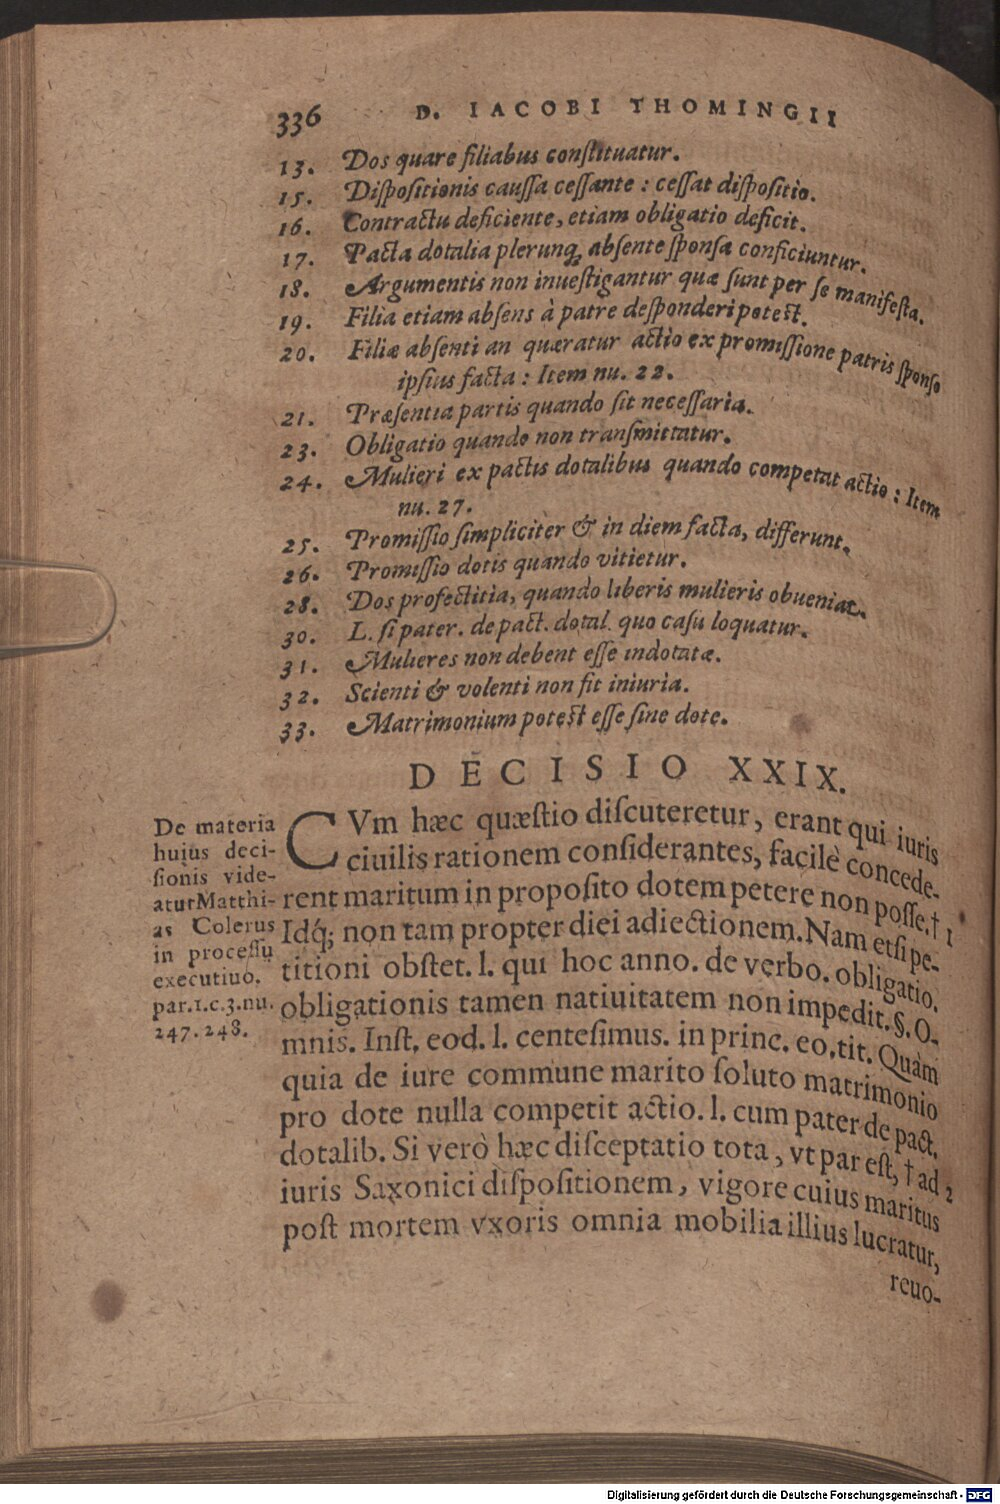 336 D. IACOBI THOMINGII
13. Dos quare filiabus constituatur.
15. Dispositionis caussa cessante : cessat dispositio.
16. Contractu deficiente, etiam obligatio deficit.
17. Pacta dotalia plerunq; absente sponsa conficiuntur.
18. Argumentis non inuestigantur quæ sunt per se manifesta.
19. Filia etiam absens à patre desponderi potest.
20. Filiæ absenti an quæratur actio ex promissione patris sponso
ipsius facta : Item nu. 22.
21. Præsentia partis quando sit necessaria.
23. Obligatio quando non transmittatur.
24. Mulieri ex pactis dotalibus quando competat actio : Item
nu. 27.
25. Promissio simpliciter & in diem facta, differunt.
26. Promissio dotis quando vitietur.
28. Dos profectitia, quando liberis mulieris obueniat.
30. L. si pater. de pact. dotal. quo casu loquatur.
31. Mulieres non debent esse indotatæ.
32. Scienti & volenti non fit iniuria.
33. Matrimonium potest esse sine dote.
DECISIO XXIX.
De materia
huius deci-
sionis vide-
atur Matthi-
as Colerus
in processu
executiuo.
par.1.c.3.nu.
247.248.
CVm hæc quæstio discuteretur, erant qui iuris
ciuilis rationem considerantes, facilè concede-
rent maritum in proposito dotem petere non posse.† 1
Idq́; non tam propter diei adiectionem. Nam etsi pe-
titioni obstet. l. qui hoc anno. de verbo. obligatio.
obligationis tamen natiuitatem non impedit. §. O-
mnis. Inst. eod. l. centesimus. in princ. eo. tit. Quàm
quia de iure commune marito soluto matrimonio
pro dote nulla competit actio. l. cum pater de pact.
dotalib. Si verò hæc disceptatio tota, vt par est, † ad 2
iuris Saxonici dispositionem, vigore cuius maritus
post mortem vxoris omnia mobilia illius lucratur,
reuo-
Digitalisierung gefördert durch die Deutsche Forschungsgemeinschaft - DFG